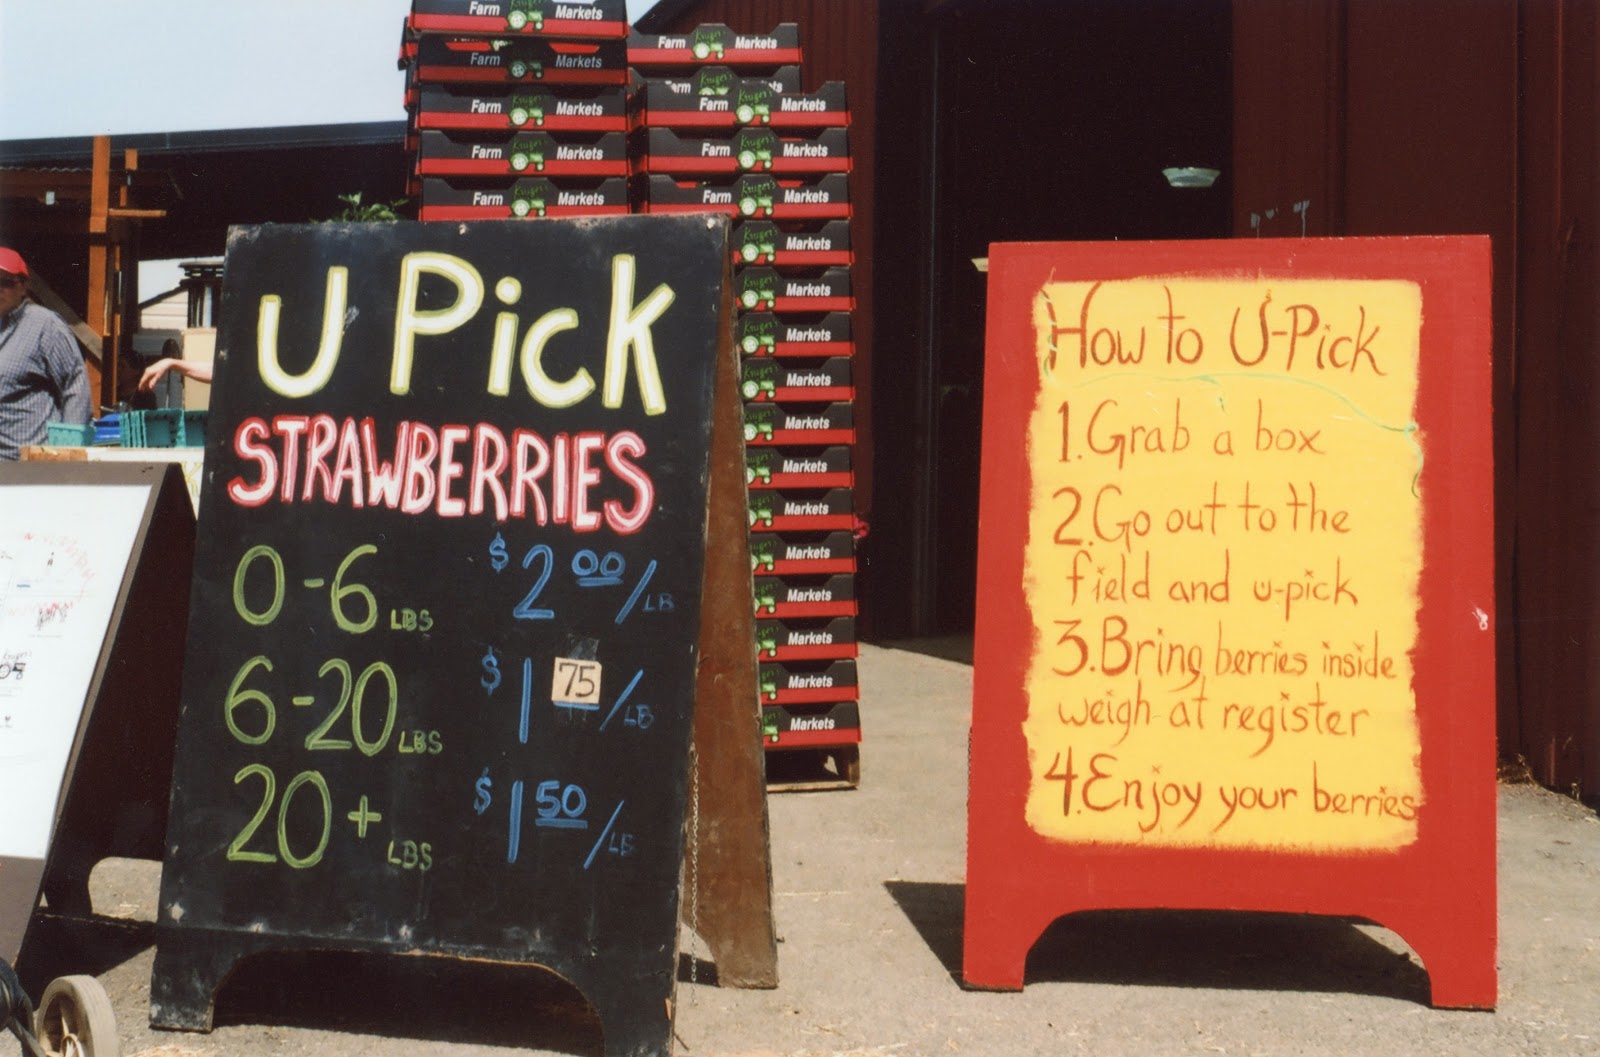 Farm Markets
Farm Markets
Farm Markets
Farm Markets
Farm Markets
Farm Kruger's Markets
Farm Kruger's Markets
Farm Kruger's Markets
Farm Kruger's Markets
Kruger's Markets
Kruger's Markets
Markets
Markets
Markets
Markets
Markets
Markets
Markets
Markets
Markets
Markets
U Pick
STRAWBERRIES
0-6 LBS $2.00/LB
6-20 LBS $1 75/LB
20+ LBS $1 50/LB
How to U-Pick
1. Grab a box
2. Go out to the
field and u-pick
3. Bring berries inside
weigh at register
4. Enjoy your berries